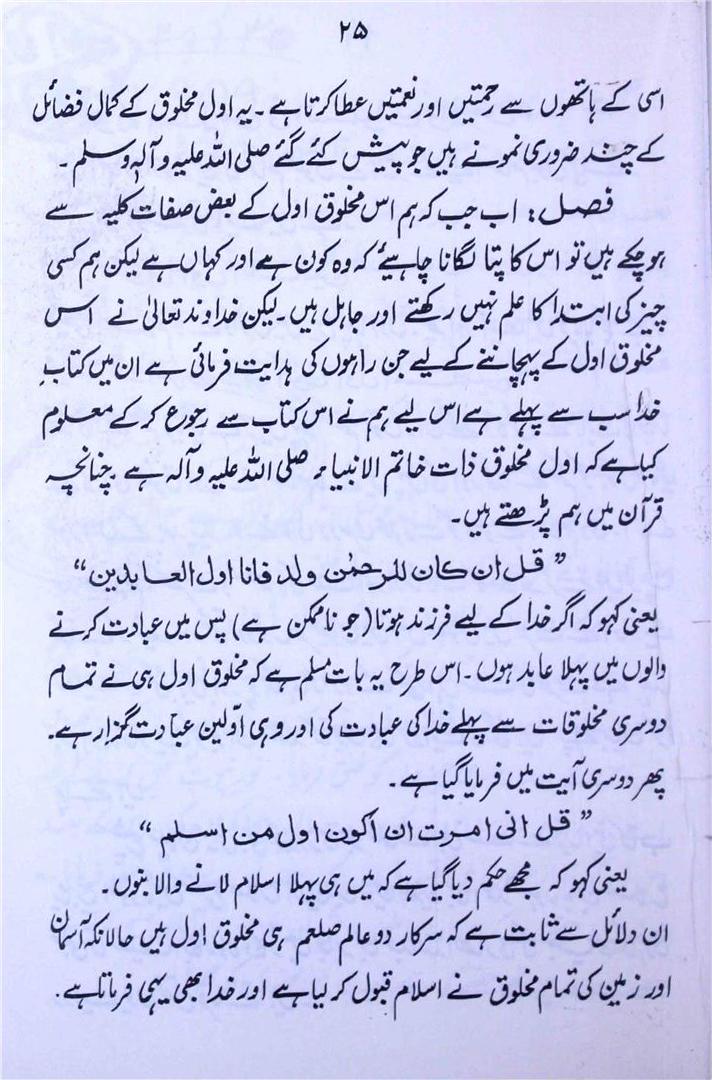 ۲۵
اسی کے ہاتھوں سے رحمتیں اور نعمتیں عطا کرتا ہے۔ یہ اول مخلوق کے کمال فضائل
کے چند ضروری نمونے ہیں جو پیش کئے گئے صلی اللہ علیہ و آلہٖ وسلم۔
فصل: اب جب کہ ہم اس مخلوق اول کے بعض صفات کلیہ سے
ہو چکے ہیں تو اس کا پتا لگانا چاہیئے کہ وہ کون ہے اور کہاں ہے لیکن ہم کسی
چیز کی ابتدا کا علم نہیں رکھتے اور جاہل ہیں۔ لیکن خداوند تعالیٰ نے اس
مخلوق اول کے پہچاننے کے لیے جن راہوں کی ہدایت فرمائی ہے ان میں کتابِ
خدا سب سے پہلے ہے اس لیے ہم نے اس کتاب سے رجوع کر کے معلوم
کیا ہے کہ اول مخلوق ذات خاتم الانبیاء صلی اللہ علیہ و آلہ ہے چنانچہ
قرآن میں ہم پڑھتے ہیں۔
”قل ان کان للرحمٰن ولد فانا اول العابدین“
یعنی کہو کہ اگر خدا کے لیے فرزند ہوتا (جو ناممکن ہے) پس میں عبادت کرنے
والوں میں پہلا عابد ہوں۔ اس طرح یہ بات مسلم ہے کہ مخلوق اول ہی نے تمام
دوسری مخلوقات سے پہلے خدا کی عبادت کی اور وہی اوّلین عبادت گزار ہے۔
پھر دوسری آیت میں فرمایا گیا ہے۔
”قل انی امرت ان اکون اول من اسلم“
یعنی کہو کہ مجھے حکم دیا گیا ہے کہ میں ہی پہلا اسلام لانے والا بنوں۔
ان دلائل سے ثابت ہے کہ سرکار دو عالم صلعم ہی مخلوق اول ہیں حالانکہ آسمان
اور زمین کی تمام مخلوق نے اسلام قبول کر لیا ہے اور خدا بھی یہی فرماتا ہے۔